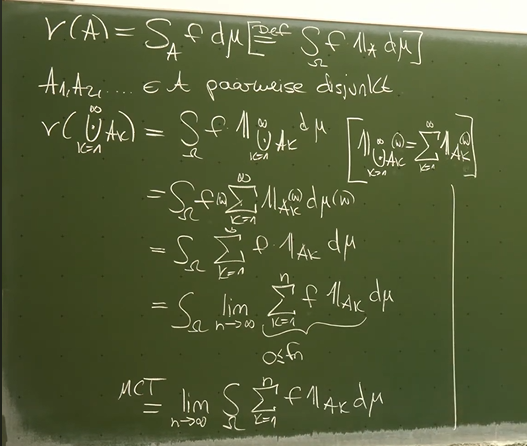 ν(A) = ∫_A f dμ [ =^{Def} ∫_Ω f 𝟙_A dμ ]
A₁, A₂, .... ∈ A paarweise disjunkt
ν(⨃_{k=1}^∞ A_k) = ∫_Ω f 𝟙_{⨃_{k=1}^∞ A_k} dμ [ 𝟙_{⨃_{k=1}^∞ A_k}(ω) = ∑_{k=1}^∞ 𝟙_{A_k}(ω) ]
= ∫_Ω f(ω) ∑_{k=1}^∞ 𝟙_{A_k}(ω) dμ(ω)
= ∫_Ω ∑_{k=1}^∞ f · 𝟙_{A_k} dμ
= ∫_Ω lim_{n→∞} ∑_{k=1}^n f 𝟙_{A_k} dμ
0≤fn
=^{MCT} lim_{n→∞} ∫_Ω ∑_{k=1}^n f 𝟙_{A_k} dμ